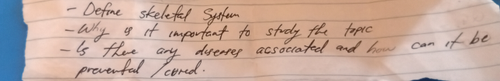 - Define skeletal System
- Why is it important to study the topic
- Is there any diseases associated and how can it be
prevented / cured.